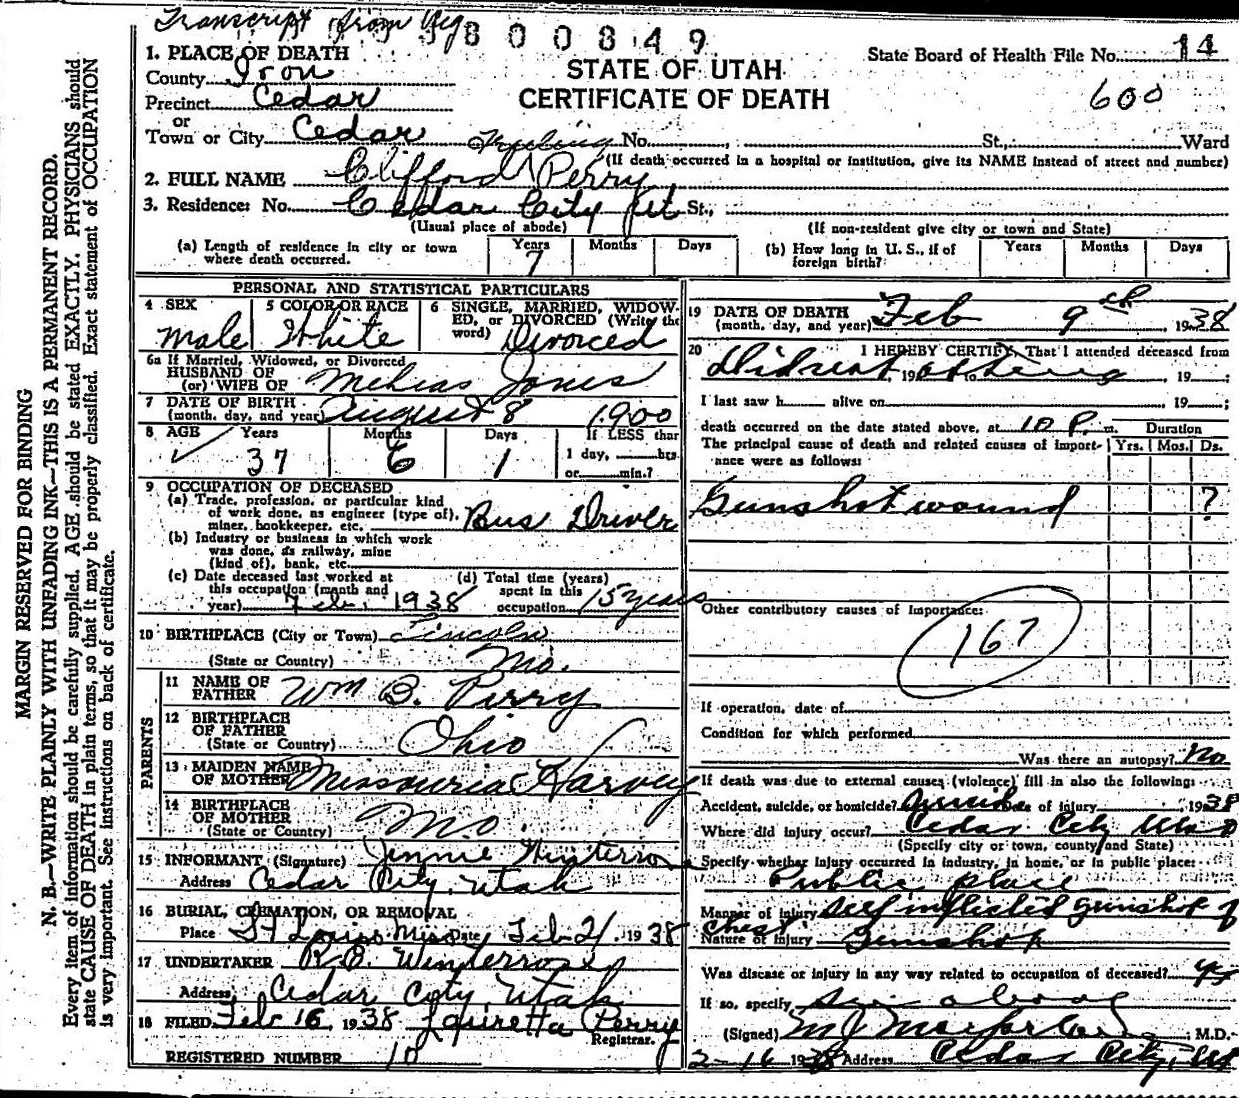 Transcript from Reg
3800849
1. PLACE OF DEATH
STATE OF UTAH
CERTIFICATE OF DEATH
State Board of Health File No. 14
600
County Iron
Precinct Cedar
or
Town or City Cedar No. St., Ward
(If death occurred in a hospital or institution, give its NAME instead of street and number)
2. FULL NAME Clifford Perry
3. Residence: No. Cedar City Ut St.,
(Usual place of abode) (If non-resident give city or town and State)
(a) Length of residence in city or town where death occurred. Years 7 Months Days
(b) How long in U. S., if of foreign birth? Years Months Days
PERSONAL AND STATISTICAL PARTICULARS
4 SEX Male
5 COLOR OR RACE White
6 SINGLE, MARRIED, WIDOWED, or DIVORCED (Write the word) Divorced
6a If Married, Widowed, or Divorced
HUSBAND OF
(or) WIFE OF Jones
7 DATE OF BIRTH
(month, day, and year) August 8 1900
8 AGE Years 37 Months 6 Days 1
If LESS than 1 day, hrs or min.?
9 OCCUPATION OF DECEASED
(a) Trade, profession, or particular kind of work done, as engineer (type of), miner, bookkeeper, etc. Bus Driver
(b) Industry or business in which work was done, as railway, mine (kind of), bank, etc.
(c) Date deceased last worked at this occupation (month and year) Feb. 1938
(d) Total time (years) spent in this occupation 15 years
10 BIRTHPLACE (City or Town) Lincoln
(State or Country) Mo.
PARENTS
11 NAME OF FATHER Wm B. Perry
12 BIRTHPLACE OF FATHER
(State or Country) Ohio
13 MAIDEN NAME OF MOTHER Missouria Harvey
14 BIRTHPLACE OF MOTHER
(State or Country) Mo.
15 INFORMANT (Signature) Jennie Winterrose
Address Cedar City, Utah
16 BURIAL, CREMATION, OR REMOVAL
Place St Louis Miss Date Feb 21, 1938
17 UNDERTAKER Winterrose
Address Cedar City, Utah
18 FILED Feb 16, 1938 Louretta Perry
Registrar.
REGISTERED NUMBER 10
19 DATE OF DEATH
(month, day, and year) Feb 9th, 1938
20 I HEREBY CERTIFY, That I attended deceased from
Did not attend, 19 to, 19 ;
I last saw h alive on, 19 ;
death occurred on the date stated above, at 10 P. m. Duration
The principal cause of death and related causes of importance were as follows: Yrs. Mos. Ds.
Gunshot wound ?
Other contributory causes of Importance:
167
If operation, date of
Condition for which performed
Was there an autopsy? No
If death was due to external causes (violence) fill in also the following:
Accident, suicide, or homicide? of injury 1938
Where did injury occur? Cedar City Utah
(Specify city or town, county and State)
Specify whether injury occurred in industry, in home, or in public place:
Public place
Manner of injury Self inflicted gunshot of
chest
Nature of Injury Gunshot
Was disease or injury in any way related to occupation of deceased? yes
If so, specify above
(Signed) M.D.
2-16 1938 Address Cedar City, Ut
MARGIN RESERVED FOR BINDING
N. B.—WRITE PLAINLY WITH UNFADING INK—THIS IS A PERMANENT RECORD.
Every item of information should be carefully supplied. AGE should be stated EXACTLY. PHYSICIANS should
state CAUSE OF DEATH in plain terms, so that it may be properly classified. Exact statement of OCCUPATION
is very important. See instructions on back of certificate.